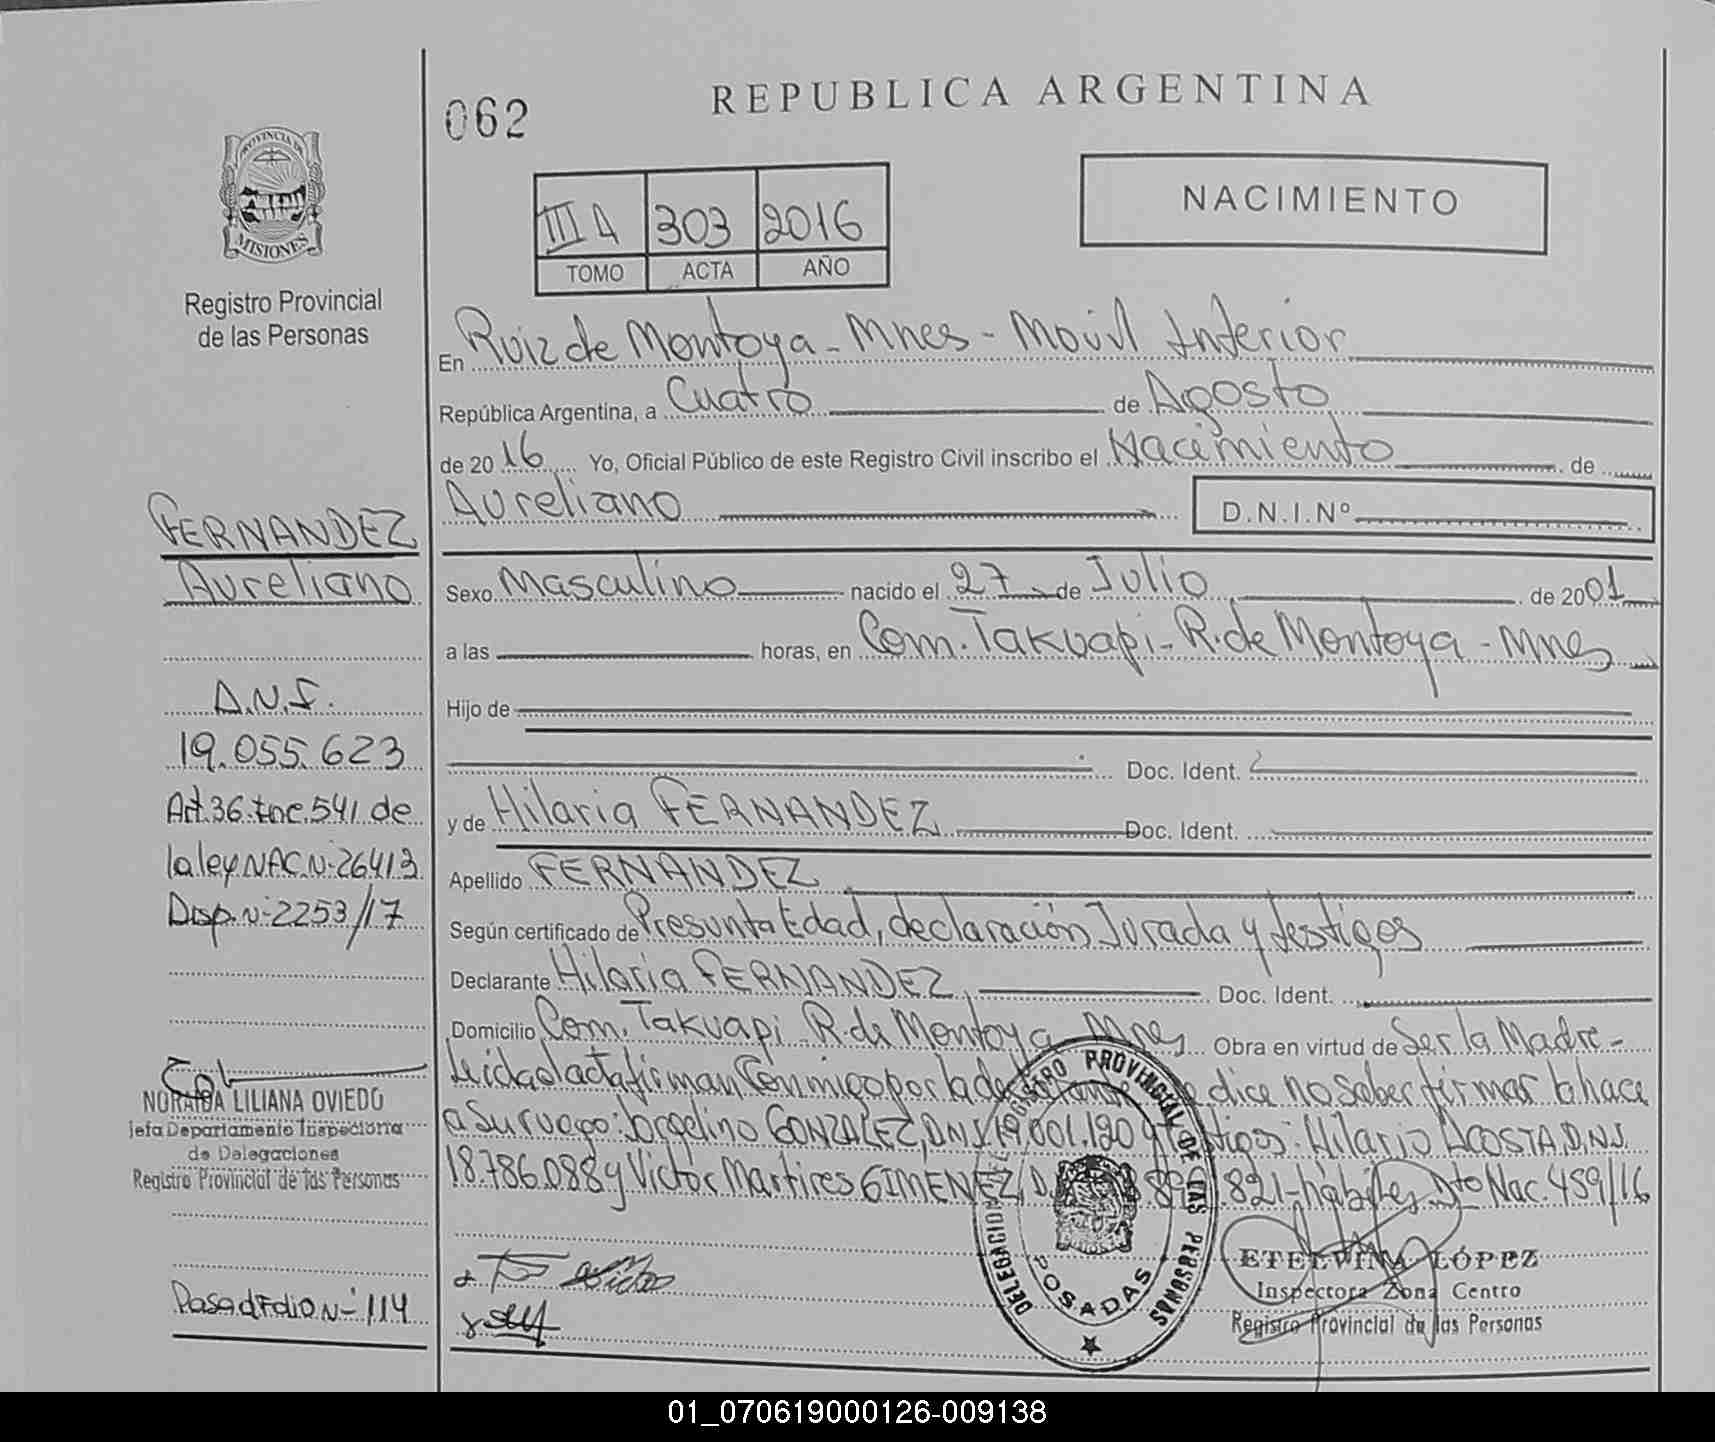 062
REPUBLICA ARGENTINA
PROVINCIA DE
MISIONES
Registro Provincial
de las Personas
III A 303 2016
TOMO ACTA AÑO
NACIMIENTO
En Ruiz de Montoya - Mnes - Movil Interior
República Argentina, a Cuatro de Agosto
de 20 16 Yo, Oficial Público de este Registro Civil inscribo el Nacimiento de
Aureliano D.N.I.Nº
FERNANDEZ
Aureliano
Sexo Masculino nacido el 27 de Julio de 2001
a las horas, en Com. Takuapi - R. de Montoya - Mnes
D.N.I.
Hijo de
19.055.623
Doc. Ident.
Art. 36 Inc. 541 de
y de Hilaria FERNANDEZ Doc. Ident.
la ley NAC. Nº 26413
Apellido FERNANDEZ
Disp. Nº 2253/17
Según certificado de Presunta Edad, declaración Jurada y testigos
Declarante Hilaria FERNANDEZ, Doc. Ident.
Domicilio Com. Takuapi R. de Montoya Mnes Obra en virtud de Ser la Madre -
Leida el acta firman Conmigo por la dice no saber firmar lo hace
a Su ruego: Jorgelino GONZALEZ, D.N.I. 19.001.120 y testigos: Hilario ACOSTA, D.N.I.
18.786.088 y Victor Martires GIMENEZ, .821 - hábiles Dto Nac. 459/16
NORAIDA LILIANA OVIEDO
Jefa Departamento Inspectoria
de Delegaciones
Registro Provincial de las Personas
DELEGACION DEL REGISTRO PROVINCIAL DE LAS PERSONAS
POSADAS
ETELVINA LÓPEZ
Inspectora Zona Centro
Registro Provincial de las Personas
Pasa al Folio Nº 114
01_070619000126-009138